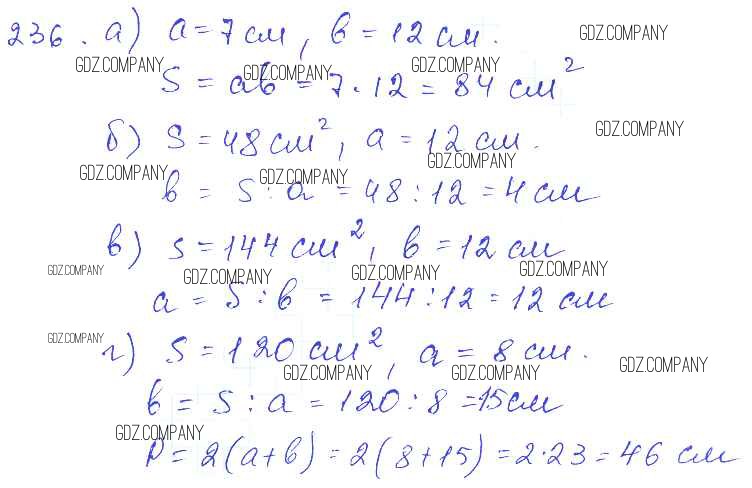 236. а) a = 7 см, в = 12 см.
GDZ.COMPANY
GDZ.COMPANY GDZ.COMPANY GDZ.COMPANY
S = aв = 7 · 12 = 84 см²
б) S = 48 см², a = 12 см.
GDZ.COMPANY
GDZ.COMPANY GDZ.COMPANY GDZ.COMPANY
в = S : a = 48 : 12 = 4 см
в) S = 144 см², в = 12 см
GDZ.COMPANY GDZ.COMPANY GDZ.COMPANY GDZ.COMPANY
a = S : в = 144 : 12 = 12 см
GDZ.COMPANY
г) S = 120 см², a = 8 см.
GDZ.COMPANY GDZ.COMPANY GDZ.COMPANY
в = S : a = 120 : 8 = 15 см
GDZ.COMPANY
P = 2(a+в) = 2(8+15) = 2·23 = 46 см